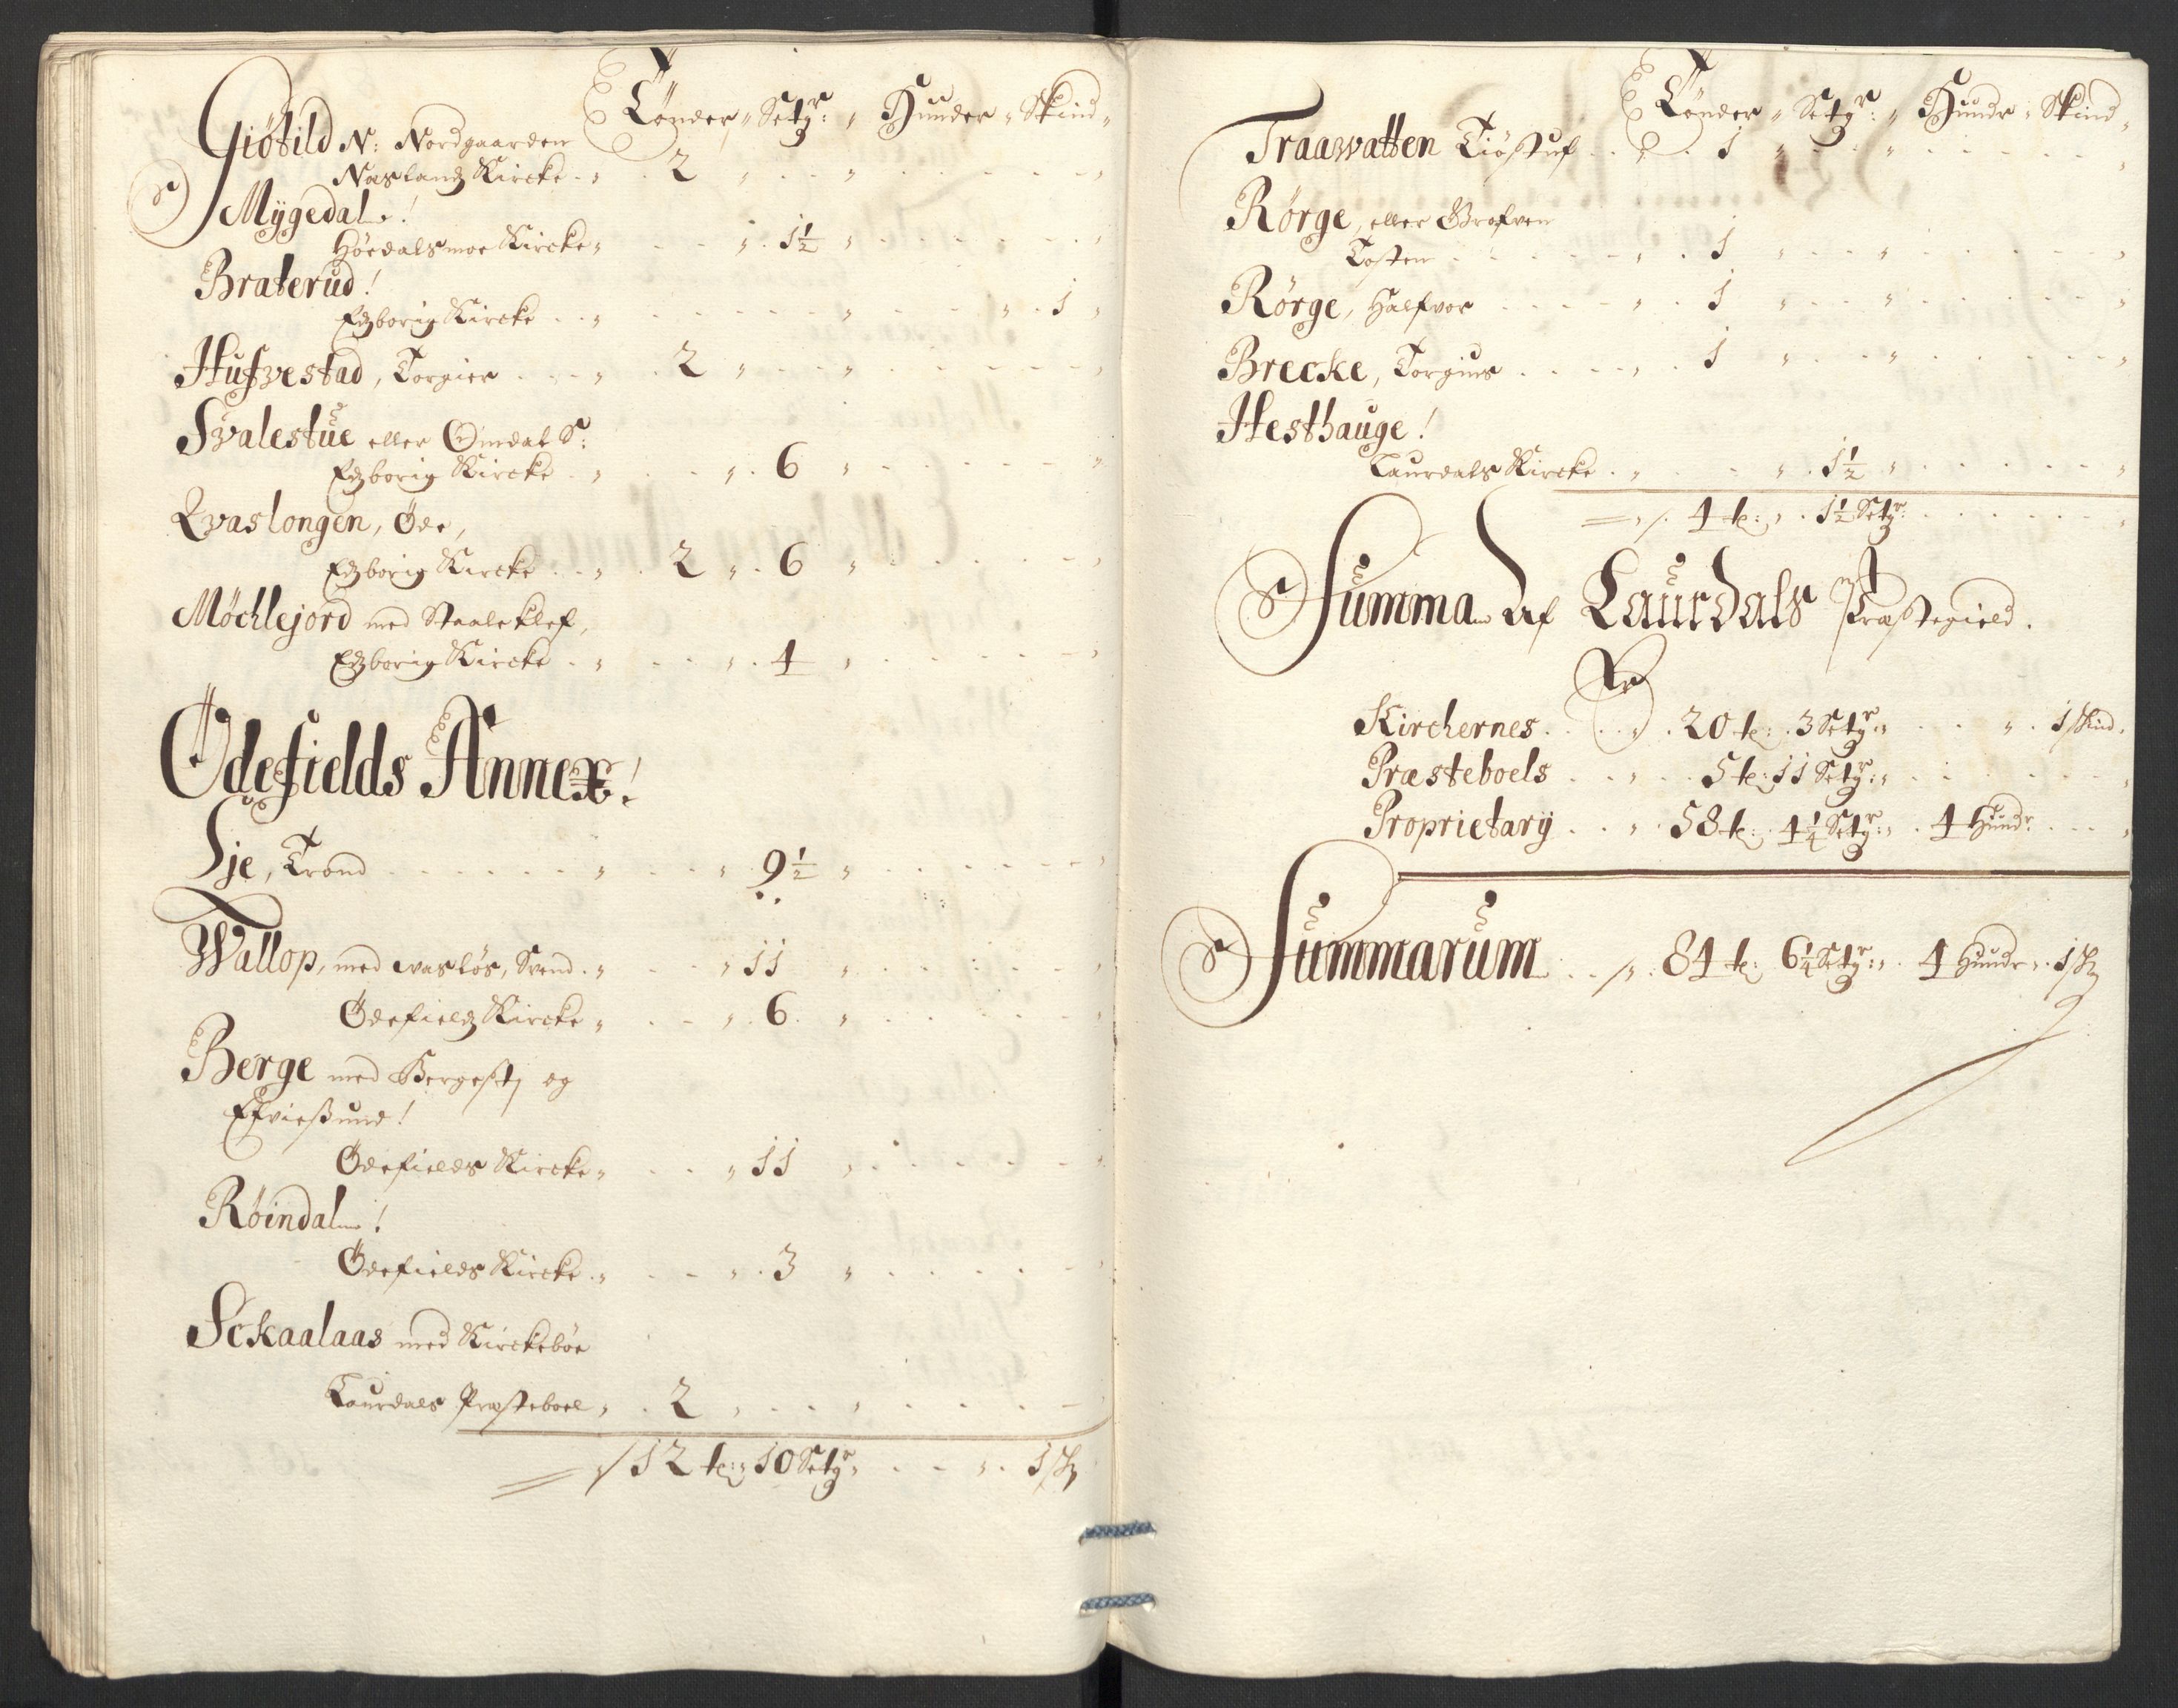 Tønder " Setgr: " Hunder " Skind "
Giötild N: Nordgaarden
Næslandz Kircke . " . 2 "
Mÿgedal !
Höedalsmoe Kircke " . 1½ "
Braterud !
Edzborig Kircke . . " . 1 "
Hufvestad, Torgier . . . " . 2 "
Svalestue eller Omdal S:
Edzborig Kircke . . " . 6 "
Qvaslongen, Öde,
Edzborig Kircke . . " . 2 " . 6 "
Möchlejord med Staaleklef,
Edzborig Kircke . . " . 4 "
Ödefields Annex !
Lje, Trond . . . " . 9½ "
Wallop, med Waslös, Svend . " . 11 "
Ödefieldz Kircke " . 6 "
Berge med Bergestj og
Efvießund !
Ödefields Kircke " . 11 "
Röindal !
Ödefields Kircke . " . 3 "
Sckaalaas med Kirckeböe
Laurdals Præsteboel " . 2 "
12 t: 10 Setgr " . . " . 1 sk
Tønder " Setgr: " Hundr " Skind "
Traawatten Tiöstuf . . " . 1 "
Rörge, eller Grofven
Tosten . . . " . 1 "
Rörge, Halfvor . . . " . 1 "
Brecke, Torgius . . . " . 1 "
Hesthauge !
Laurdals Kircke . " . 1½ "
4 t: " . 1½ Setgr:
Summa Af Laurdals Præstegield .
Er
Kirchernes . . " . 20 t: . 3 Setgr " . . " . 1 Skind .
Præsteboels . . " . 5 t: 11 Setgr: "
Proprietarÿ . . " . 58 t: . 4¼ Setgr: " . 4 Hundr . . .
Summarum . . 84 t: 6¼ Setgr: " . 4 Hundr " . 1 sk